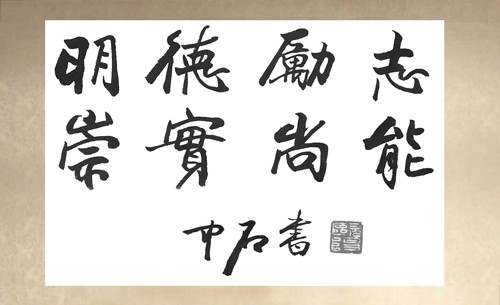 明德勵志
崇實尚能
中石書